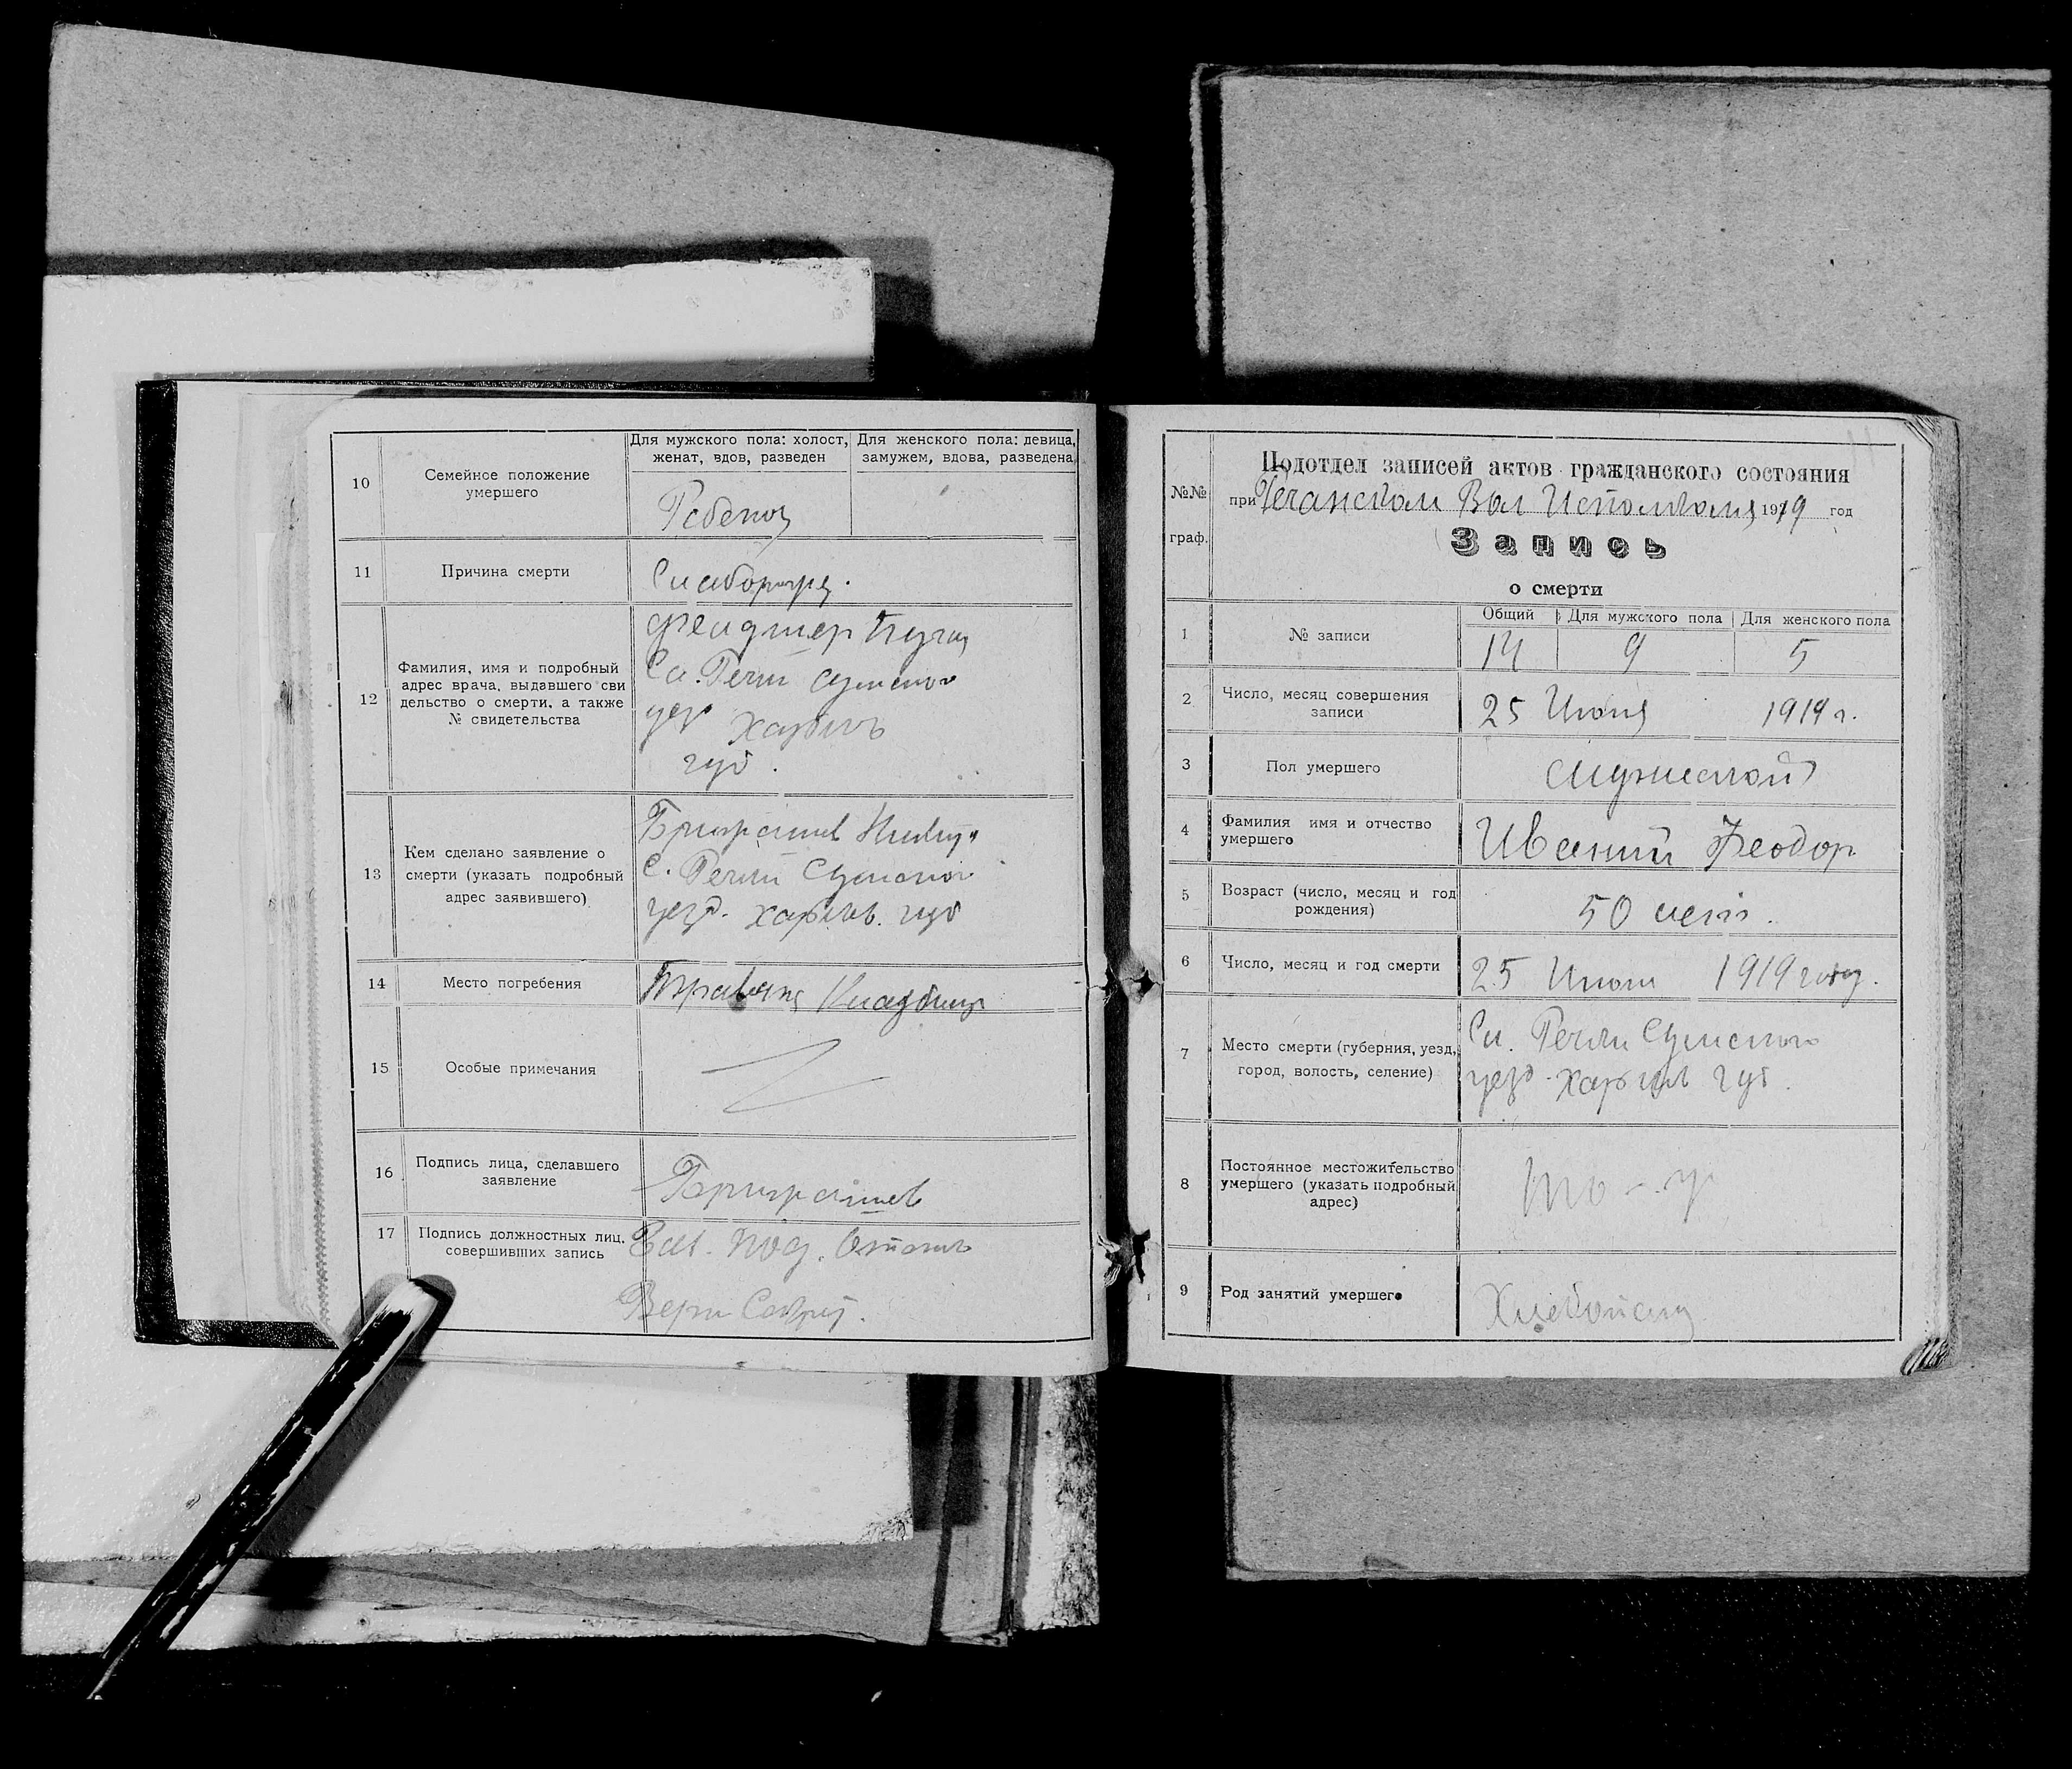 10
Семейное положение
умершего
Для мужского пола: холост,
женат, вдов, разведен
Для женского пола: девица,
замужем, вдова, разведена
Ребенок
11
Причина смерти
12
Фамилия, имя и подробный
адрес врача, выдавшего сви
дельство о смерти, а также
№ свидетельства
фельдшер
Сл. Речки Сумского
уез Харьков
губ.
13
Кем сделано заявление о
смерти (указать подробный
адрес заявившего)
С. Речки Сумского
уезд. Харьков. губ
14
Место погребения
Кладбище
15
Особые примечания
16
Подпись лица, сделавшего
заявление
17
Подпись должностных лиц,
совершивших запись
Зав. Под. Отдел
№№
граф.
Подотдел записей актов гражданского состояния
при Речанском Вол Исполкоме 1919 год
Запись
о смерти
1
№ записи
Общий
Для мужского пола
Для женского пола
14
9
5
2
Число, месяц совершения
записи
25 Июня 1919 г.
3
Пол умершего
Мужеской
4
Фамилия имя и отчество
умершего
Феодор
5
Возраст (число, месяц и год
рождения)
50 лет.
6
Число, месяц и год смерти
25 Июня 1919 году.
7
Место смерти (губерния, уезд,
город, волость, селение)
Сл. Речки Сумского
уезд. Харьков губ.
8
Постоянное местожительство
умершего (указать подробный
адрес)
9
Род занятий умершего